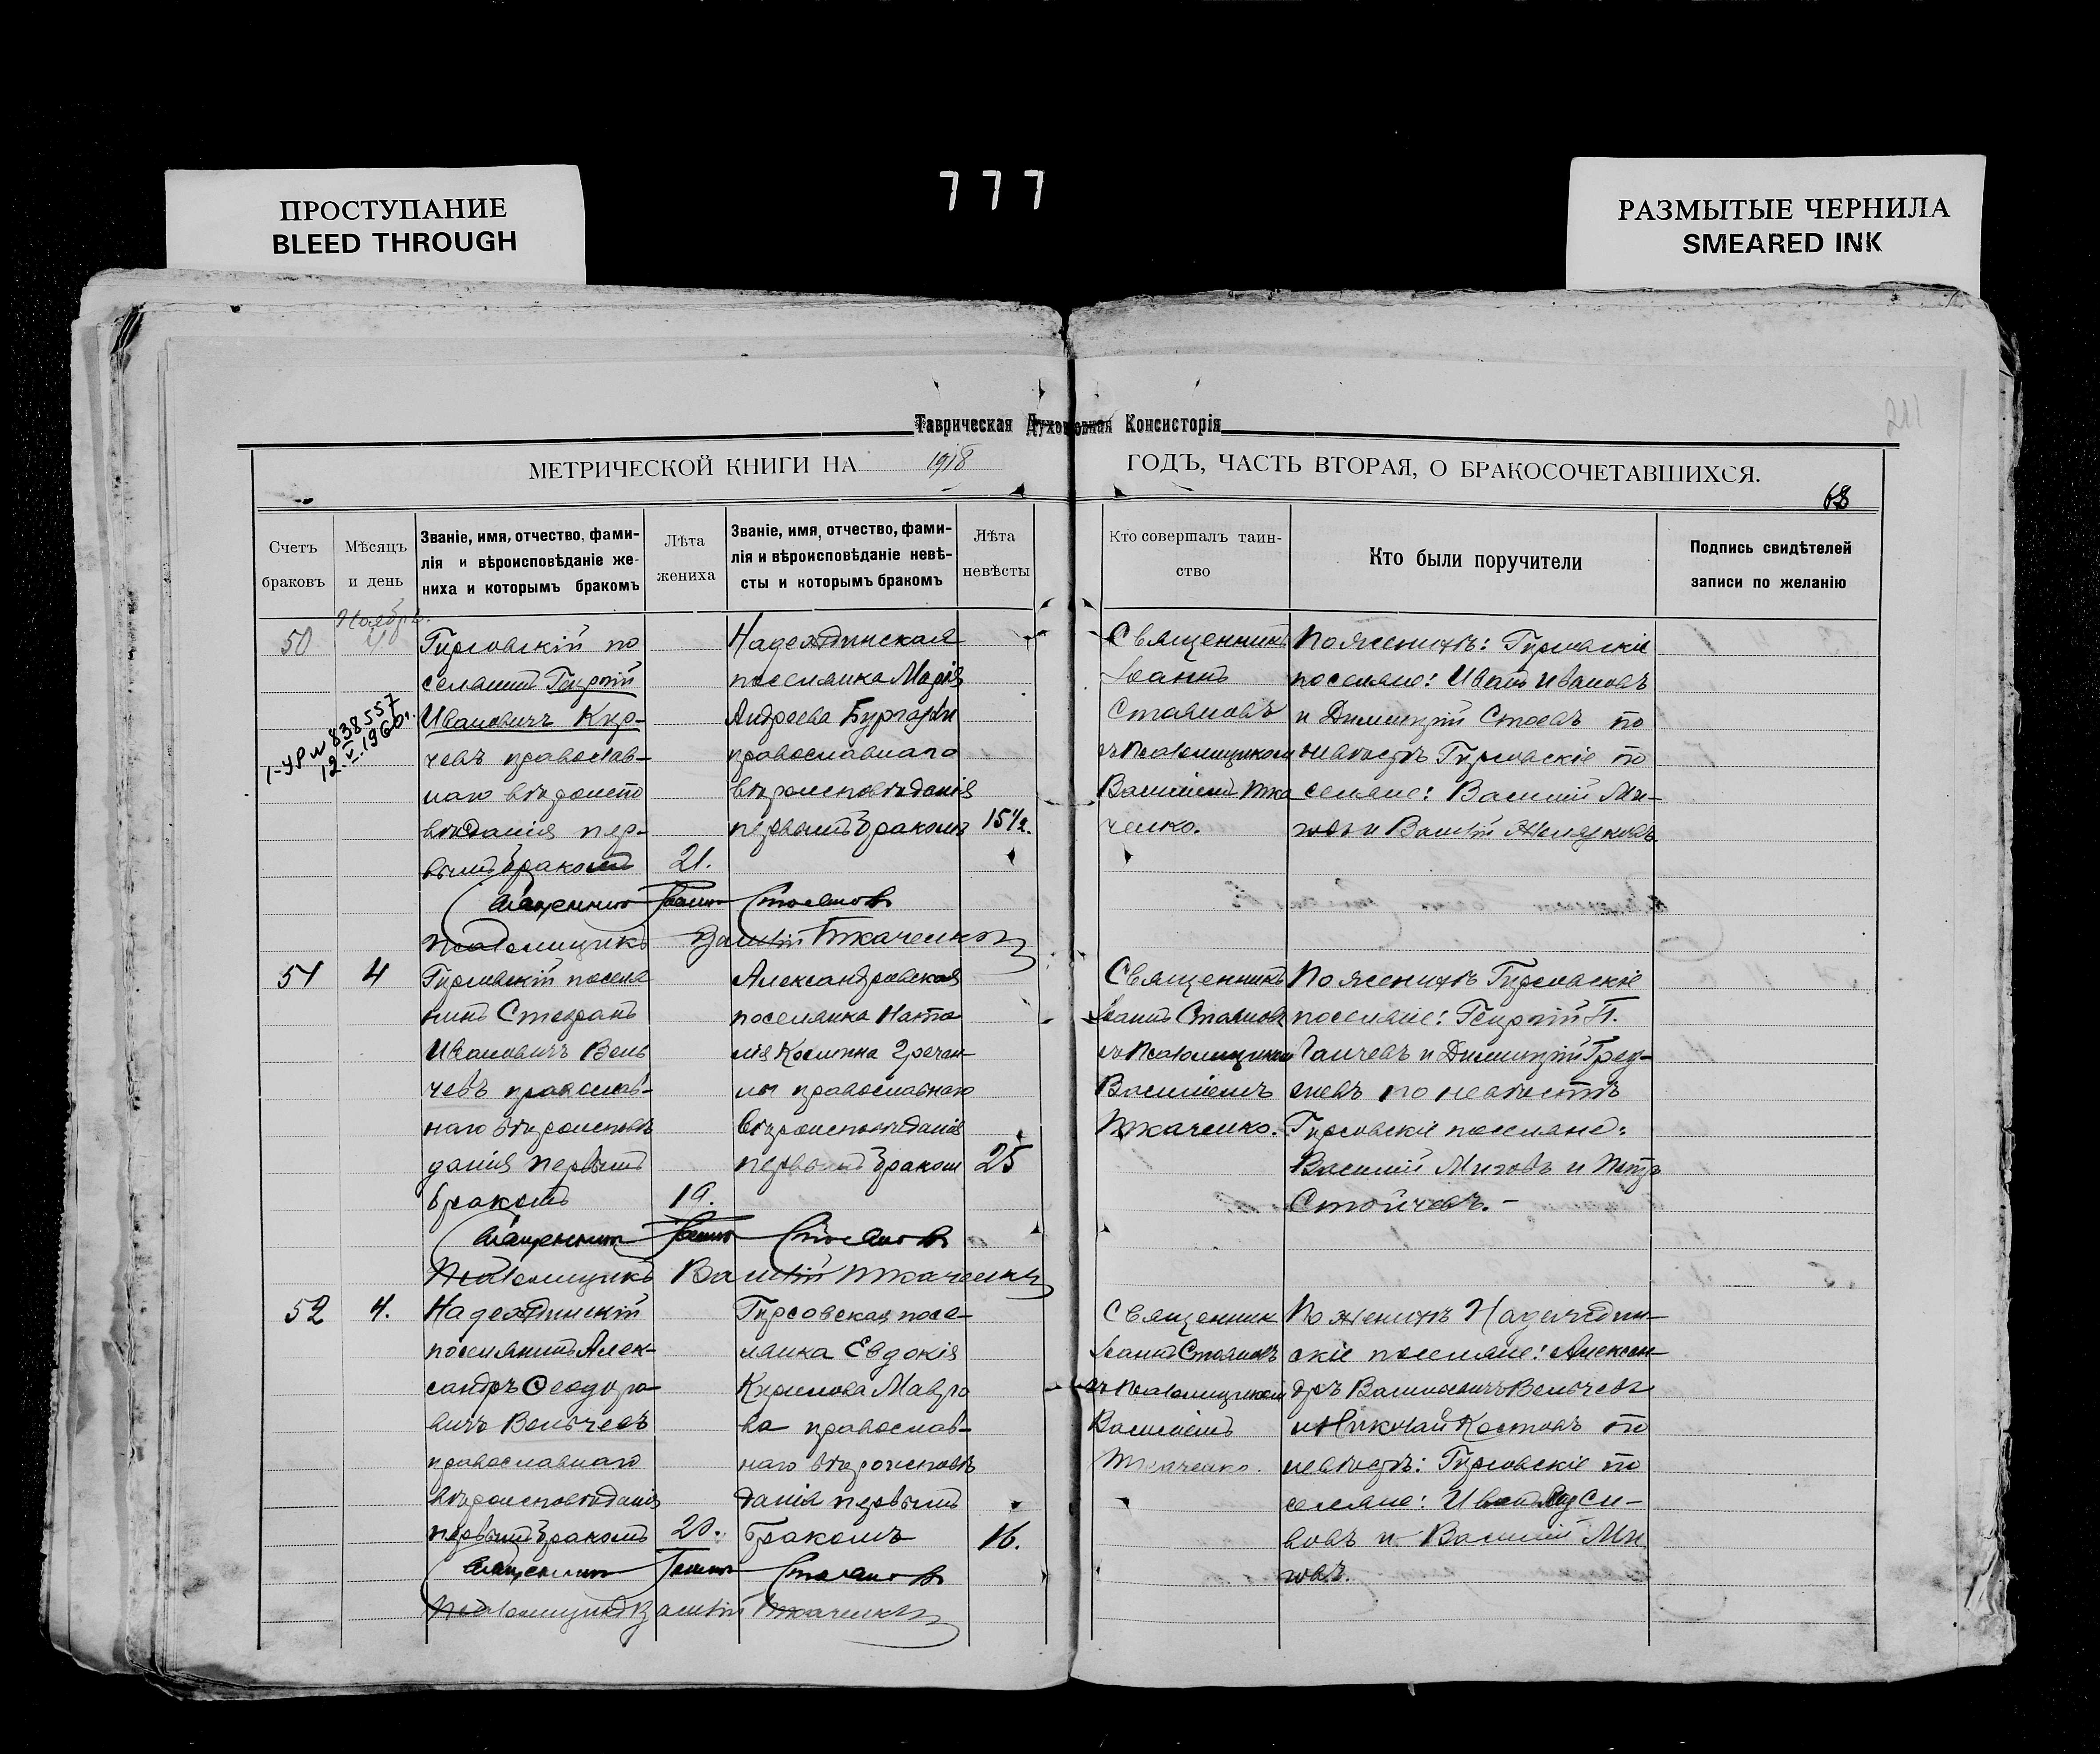 777
ПРОСТУПАНИЕ
BLEED THROUGH
РАЗМЫТЫЕ ЧЕРНИЛА
SMEARED INK
Таврическая Духовная Консисторія
МЕТРИЧЕСКОЙ КНИГИ НА 1918 ГОДЪ, ЧАСТЬ ВТОРАЯ, О БРАКОСОЧЕТАВШИХСЯ.
68
Счетъ
браковъ
Мѣсяцъ
и день
Званіе, имя, отчество, фами-
лія и вѣроисповѣданіе же-
ниха и которымъ бракомъ
Лѣта
жениха
Званіе, имя, отчество, фами-
лія и вѣроисповѣданіе невѣ-
сты и которымъ бракомъ
Лѣта
невѣсты
Кто совершалъ таин-
ство
Кто были поручители
Подпись свидѣтелей
записи по желанію
50
Ноябрь.
1-УР № 838557
12.V.1960г.
Гирсовскій по
селянинъ Георгій
Ивановичъ Кир-
чевъ православ-
наго вѣроиспо
вѣданія пер-
вымъ бракомъ
21.
Надеждинская
поселянка Марія
Андреева
православнаго
вѣроисповѣданія
первымъ бракомъ
15½.
Священникъ
Іоаннъ
Стояновъ
съ псаломщикомъ
Василіемъ Тка
ченко.
По женихѣ: Гирсовскіе
поселяне: Иванъ Ивановъ
и Димитрій Стоевъ по
невѣстѣ Гирсовскіе по
селяне: Василій Ми-
ховъ и Василій Желязковъ
Священникъ Іоаннъ Стояновъ
Псаломщикъ Василій Ткаченко
51
4
Гирсовскій поселя
нинъ Стефанъ
Ивановичъ Вель
чевъ православ-
наго вѣроисповѣ
данія первымъ
бракомъ
19.
Александровская
поселянка Ната
лія Космина Гречан-
лы православнаго
вѣроисповѣданія
первымъ бракомъ
25
Священникъ
Іоаннъ Стояновъ
съ псаломщикомъ
Василіемъ
Ткаченко.
По женихѣ Гирсовскіе
поселяне: Георгій П.
Ганчевъ и Димитрій
по невѣстѣ
Гирсовскіе поселяне:
Василій Миховъ и Петръ
Стойчевъ.-
Священникъ Іоаннъ Стояновъ
Псаломщикъ Василій Ткаченко
52
4.
Надеждинскій
поселянинъ Алек-
сандръ Ѳеодоро
вичъ Вельчевъ
православнаго
вѣроисповѣданія
первымъ бракомъ
20.
Гирсовская посе-
лянка Евдокія
Кирилова Мавро
ва православ-
наго вѣроисповѣ
данія первымъ
бракомъ
16.
Священник
Іоаннъ Стояновъ
съ псаломщикомъ
Василіемъ
Ткаченко.
По женихѣ Надеждин-
скіе поселяне: Алексан-
дръ Василіевичъ Вельчевъ
и Николай Костовъ по
невѣстѣ: Гирсовскіе по
селяне: Иванъ
и Василій Ми
ховъ.
Священникъ Іоаннъ Стояновъ
Псаломщикъ Василій Ткаченко